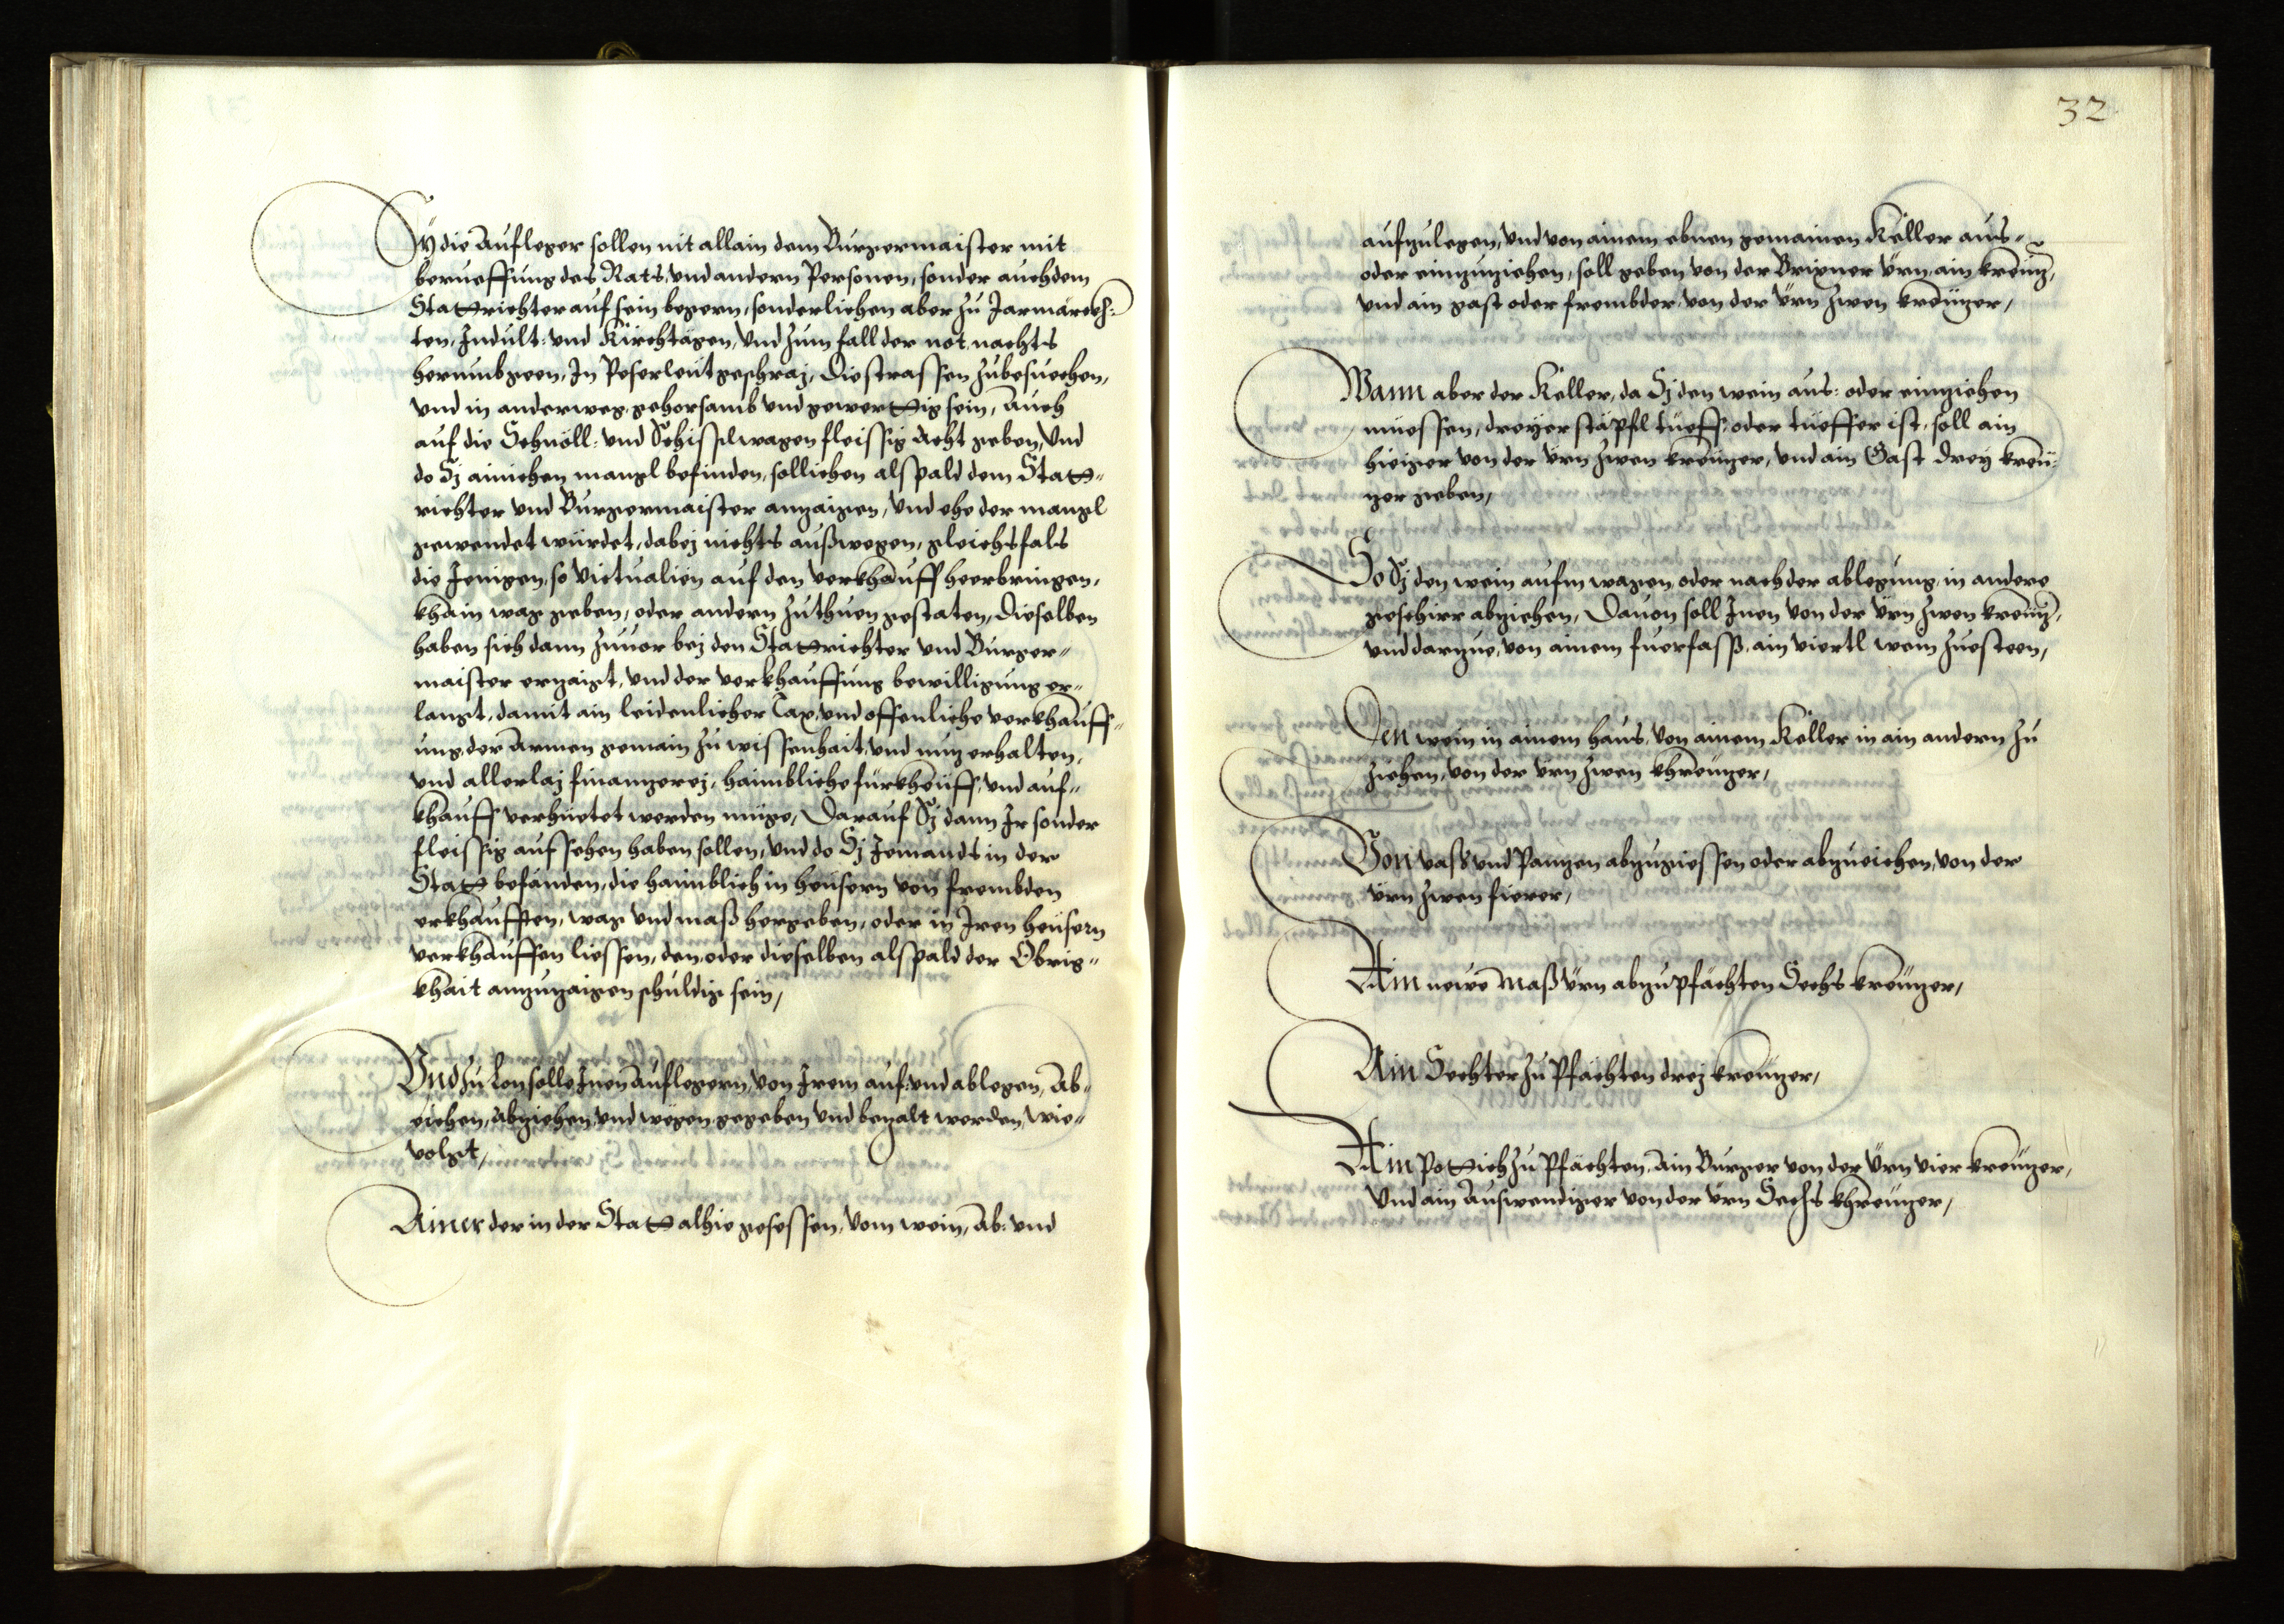 Sÿ die Aufleger sollen nit allain dem Burgermaister mit
berueffung des Rats, vnd andern Personen, sonder auch dem
Statrichter auf sein begern, sonderlichen aber zu Jarmärckh:
ten, Indult: vnd Kirchtägen, vnd zum fall der not, nachts
herumbgeen, In Peserleütgeschraj, Die strassen zubesuechen,
vnd in anderweg, gehorsamb vnd gewertig sein, Auch
auf die Schnöll: vnd Schisslwagen fleissig Acht geben, Vnd
do Sj ainichen mangl befinden, sollichen alspald dem Stat-
richter vnd Burgermaister anzaigen, Vnd ehe der mangl
gewendet würdet, dabej nichts außwegen, gleichsfals
die Jenigen, so victualien auf den verkhauff heerbringen,
khain wag geben, oder andern zuthuen gestaten, Dieselben
haben sich dann zuuor bej den Statrichter vnd Burger-
maister erzaigt, vnd der verkhauffung bewilligung er-
langt, damit ain leidenlicher Tax, vnd offenliche verkhauff-
ung, der Armen gemain zu wissenhait, vnd nuz erhalten,
vnd allerlaj finanzerej, haimbliche fürkheüff, vnd auf-
khauff verhüetet werden müge, Darauf Sj dann Ir sonder
fleissig aufsehen haben sollen, vnd do Sj Jemandts in der
Stat befänden, die haimblich in heüsern von frembden
erkhaufften, wag vnd maß hergeben, oder in Iren heüsern
verkhauffen liessen, den, oder dieselben alspald der Obrig-
khait anzuzaigen schuldig sein,
Vnd zu Lon solle Inen Auflegern, von Irem auf: vnd ablegen, Ab-
eichen, abziehen, vnd wegen gegeben vnd bezalt werden, wie-
volgt,
Ainer der in der Stat alhie gesessen, Vom wein, Ab: vnd
32
aufzulegen, vnd von ainem ebnen gemainen Keller aus-
oder einzuziehen, soll geben von der Brixner Ürn, ain kreüz,
vnd ain gast oder frembder, von der Ürn zwen kreüzer,
Wann aber der Keller, da Sj den wein aus: oder einziehen
müessen, dreÿer stäpfl tüeff: oder tüeffer ist, soll ain
hieiger von der Ürn zwen kreüzer, vnd ain Gast dreÿ kreü-
zer geben,
So Sj den wein aufm wagen, oder nach der ablegung, in andere
geschirr abziehen, Dauon soll Inen von der Ürn zwen kreüz,
vnd darzue, von ainem fuerfasß, ain viertl wein zuesteen,
Den wein in ainem haus, von ainem Keller in ain andern zu
ziehen, von der Ürn zwen khreüzer,
Von vaß vnd Panzen abzugiessen oder abzueichen, von der
Ürn zwen fierer,
Ain newe maß Ürn abzupfächten Sechs kreüzer,
Ain Sechter zu Pfächten drej kreüzer,
Ain Potich zu Pfächten, Ain Burger von der Ürn vier kreüzer,
Vnd ain Auswendiger von der Ürn Sechs khreüzer,